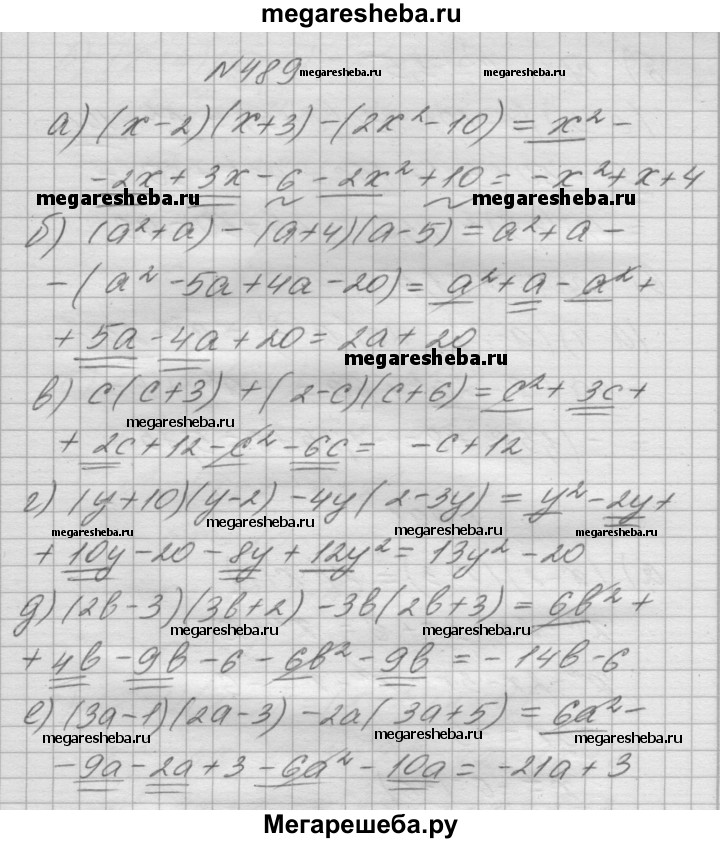 megaresheba.ru
№489 megaresheba.ru megaresheba.ru
а) (x-2)(x+3)-(2x²-10)=x²-
-2x+3x-6-2x²+10=-x²+x+4
megaresheba.ru megaresheba.ru
б) (a²+a)-(a+4)(a-5)=a²+a-
-(a²-5a+4a-20)=a²+a-a²+
+5a-4a+20=2a+20
megaresheba.ru
в) c(c+3)+(2-c)(c+6)=c²+3c+
megaresheba.ru
+2c+12-c²-6c= -c+12
г) (y+10)(y-2)-4y(2-3y)=y²-2y+
megaresheba.ru megaresheba.ru megaresheba.ru
+10y-20-8y+12y²=13y²-20
д) (2b-3)(3b+2)-3b(2b+3)=6b²+
megaresheba.ru megaresheba.ru
+4b-9b-6-6b²-9b=-14b-6
е) (3a-1)(2a-3)-2a(3a+5)=6a²-
megaresheba.ru megaresheba.ru megaresheba.ru
-9a-2a+3-6a²-10a=-21a+3
Мегарешеба.ру